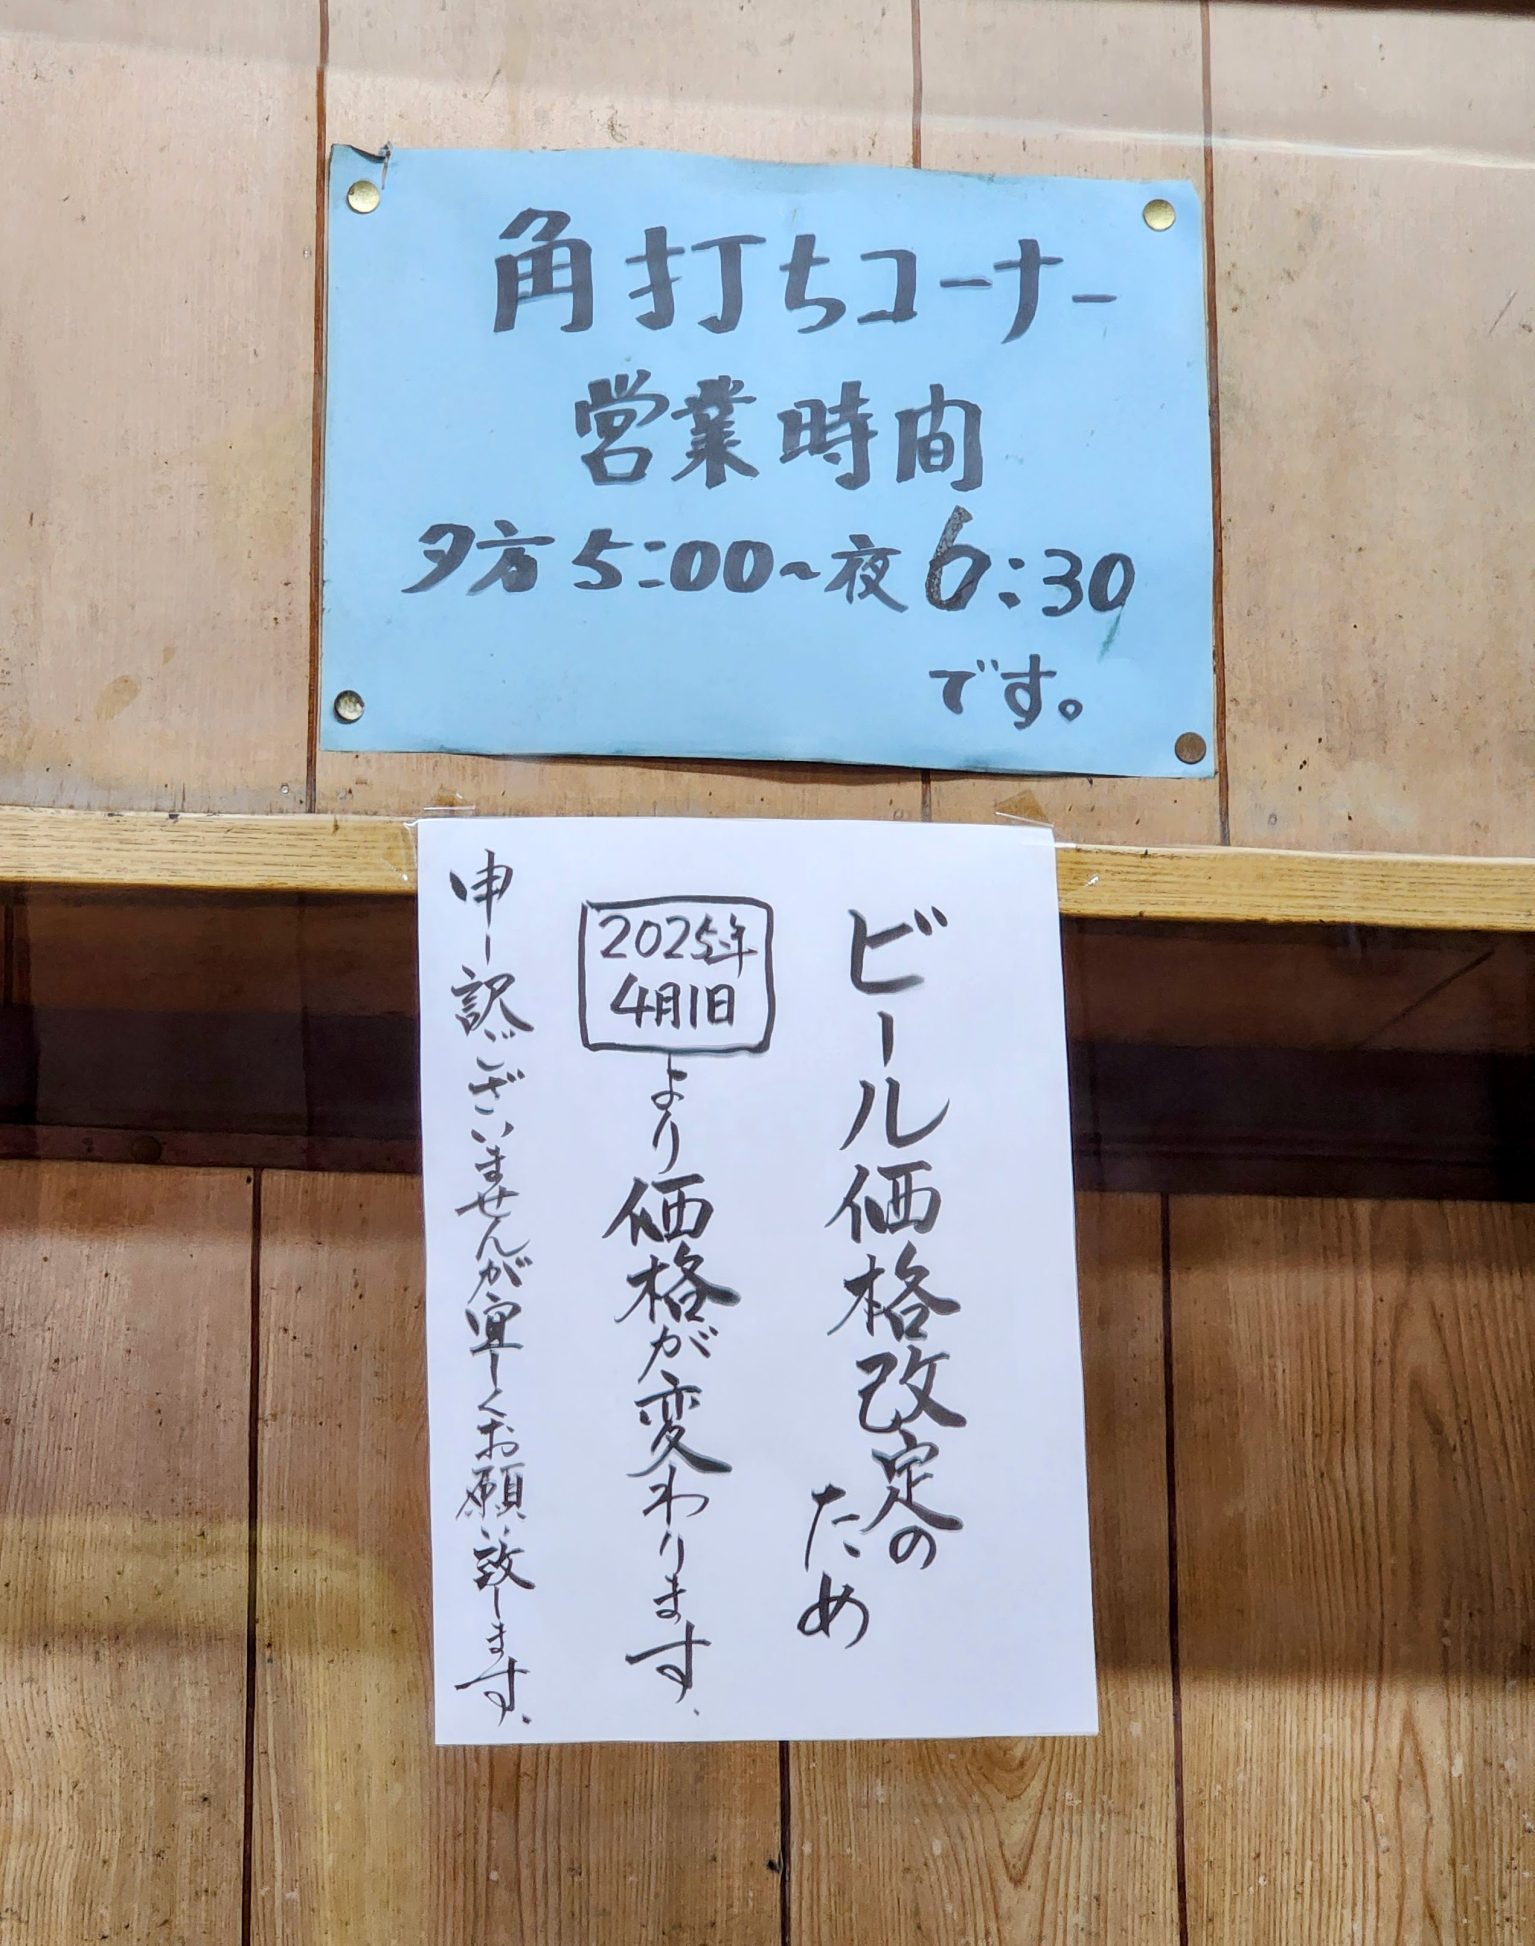 角打ちコーナー
営業時間
夕方5:00~夜6:30
です。
ビール価格改定の
ため
2025年
4月1日
より価格が変わります、
申し訳ございませんが宜しくお願い致します、